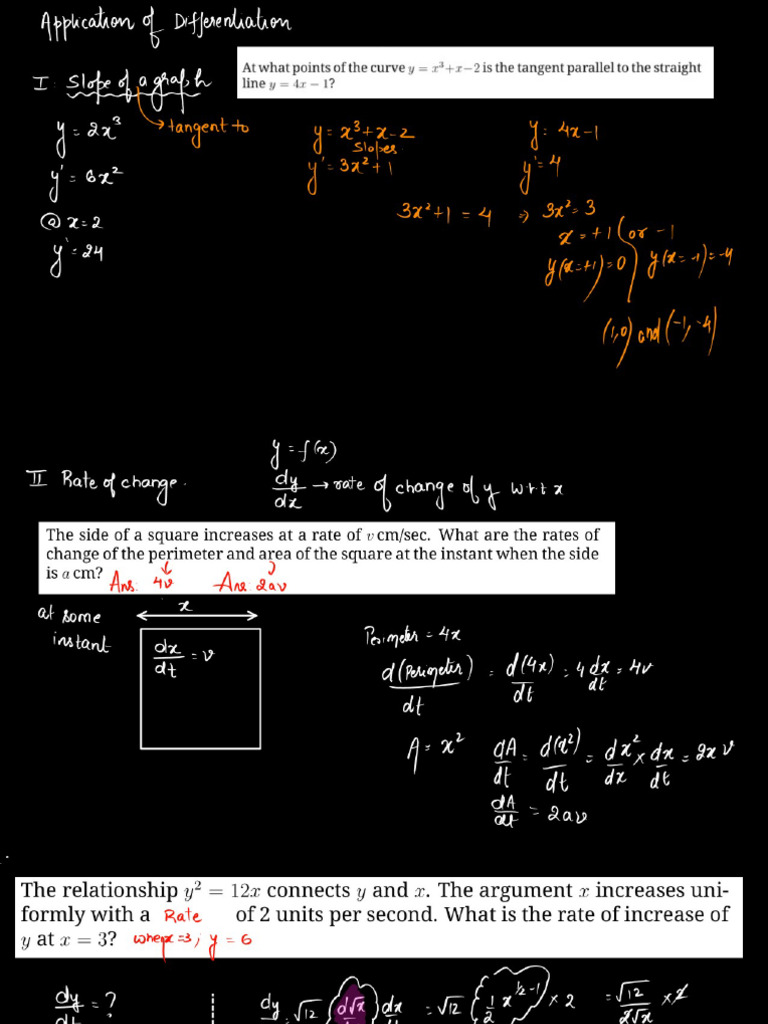 Application of Differentiation
I : Slope of a graph
→ tangent to
At what points of the curve y = x³+x−2 is the tangent parallel to the straight
line y = 4x − 1?
y = 2x³
y' = 6x²
@ x = 2
y' = 24
y = x³+x-2
Slopes
y' = 3x²+1
y = 4x-1
y' = 4
3x²+1 = 4 ⇒ 3x² = 3
x = +1 or -1
y(x=+1) = 0 y(x=-1) = -4
(1,0) and (-1,-4)
II Rate of change.
y = f(x)
dy/dx → rate of change of y w r t x
The side of a square increases at a rate of v cm/sec. What are the rates of
change of the perimeter and area of the square at the instant when the side
is a cm? Ans. 4v Ans 2av
at some
instant
x
dx/dt = v
Perimeter = 4x
d(Perimeter)/dt = d(4x)/dt = 4 dx/dt = 4v
A = x² dA/dt = d(x²)/dt = dx²/dx × dx/dt = 2x v
dA/dt = 2av
The relationship y² = 12x connects y and x. The argument x increases uni-
formly with a Rate of 2 units per second. What is the rate of increase of
y at x = 3? when x=3; y = 6
dy/dt = ?
dy √12 d√x dx = √12 (1/2 x^(1/2-1)) × 2 = √12/2√x × 2